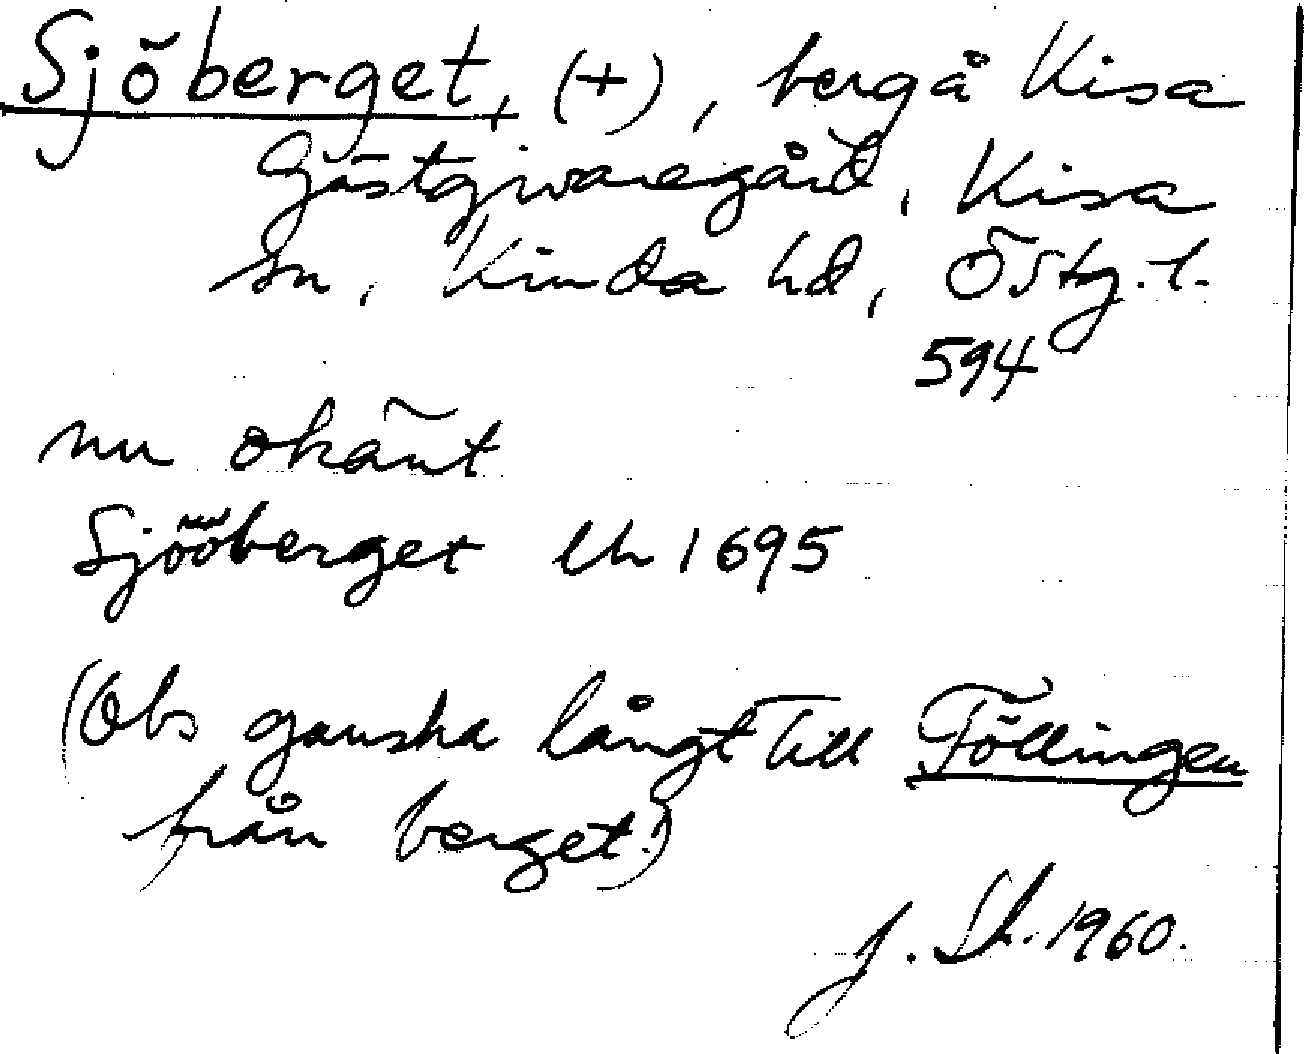 Sjöberget, (+), berg å Kisa
Gästgivaregård, Kisa
sn, Kinda hd, Östg. l.
594
nu okänt
Sjööberget Uh 1695
(Obs ganska långt till Föllingen
från berget!)
J. Sh. 1960.